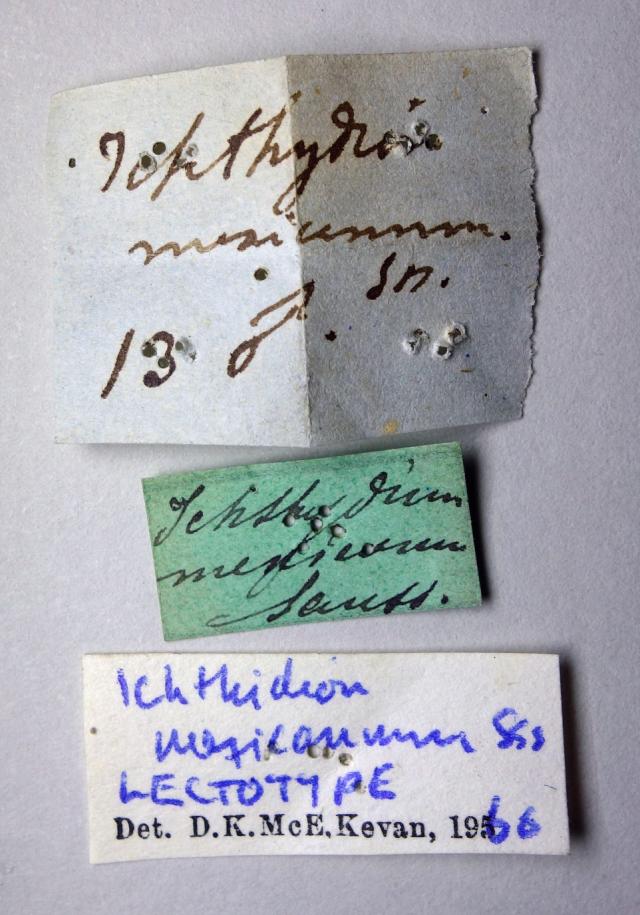 Ichthydion
mexicanum.
Sn.
13
Ichthydium
mexicanum
Sauss.
Ichthidion
mexicanum Sss
LECTOTYPE
Det. D.K.McE.Kevan, 1966